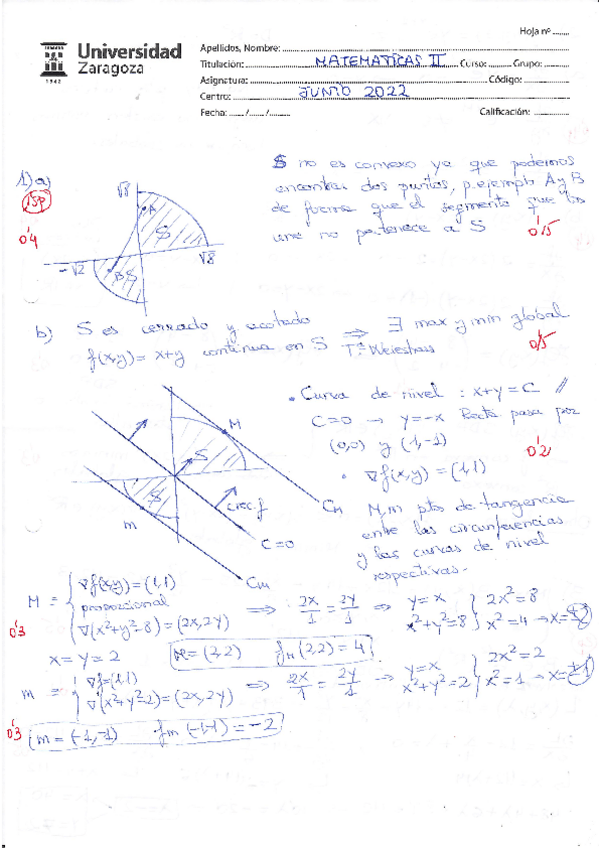 Hoja nº
Universidad
Zaragoza
1542
Apellidos, Nombre:
Titulación: MATEMATICAS II Curso: Grupo:
Asignatura: Código:
Centro: JUNIO 2022
Fecha: ...../...../..... Calificación:
1) a)
0'4
√8
A
S
√8
-√2
B
S
S no es convexo ya que podemos
encontrar dos puntos, p. ejemplo A y B
de forma que el segmento que los
une no pertenece a S
0'15
b) S es cerrado y acotado
f(x,y) = x+y continua en S ⟹ ∃ max y min global
Tª Weierstrass
• Curva de nivel : x+y = C //
C=0 → y=-x Recta pasa por
(0,0) y (1,-1)
0'2
• ∇f(x,y) = (1,1)
M, m ptos de tangencia
entre las circunferencias
y las curvas de nivel
respectivas.
M
S
S
m
crec. f
C=0
C_M
C_m
M = { ∇f(x,y) = (1,1)
proporcional
∇(x²+y²-8) = (2x,2y) ⟹ 2x/1 = 2y/1 → y=x
x²+y²=8 } 2x²=8
x²=4 → x=±2
0'3
x=y=2 M = (2,2) f_M(2,2) = 4
m = { ∇f=(1,1)
∇(x²+y²-2) = (2x,2y) ⟹ 2x/1 = 2y/1 → y=x
x²+y²=2 } 2x²=2
x²=1 → x=±1
0'3
m = (-1,-1) f_m(-1,-1) = -2